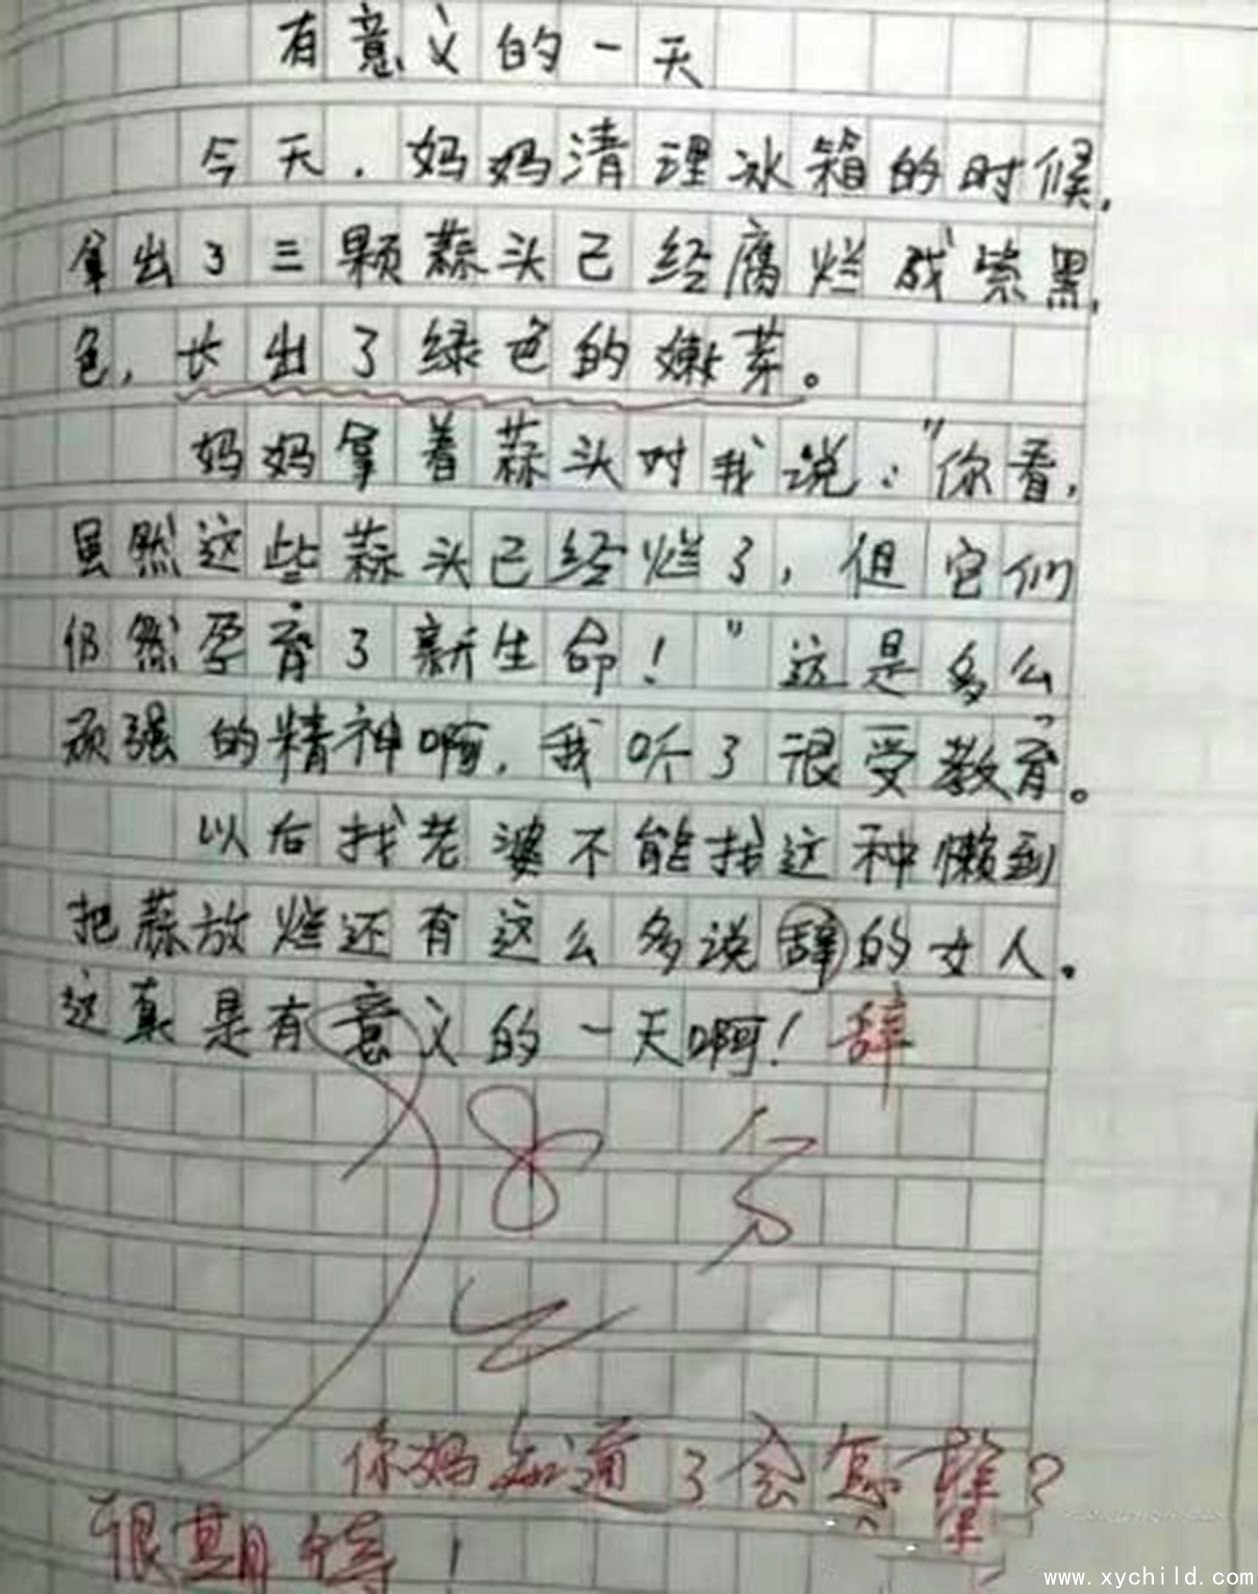 有意义的一天
今天，妈妈清理冰箱的时候，
拿出了三颗蒜头已经腐烂成紫黑
色，长出了绿色的嫩芽。
妈妈拿着蒜头对我说："你看，
虽然这些蒜头已经烂了，但它们
仍然孕育了新生命！"这是多么
顽强的精神啊，我听了很受教育。
以后找老婆不能找这种懒到
把蒜放烂还有这么多说辞的女人。
这真是有意义的一天啊！辞
8分
你妈知道了会怎样？
很期待！
www.xychild.com